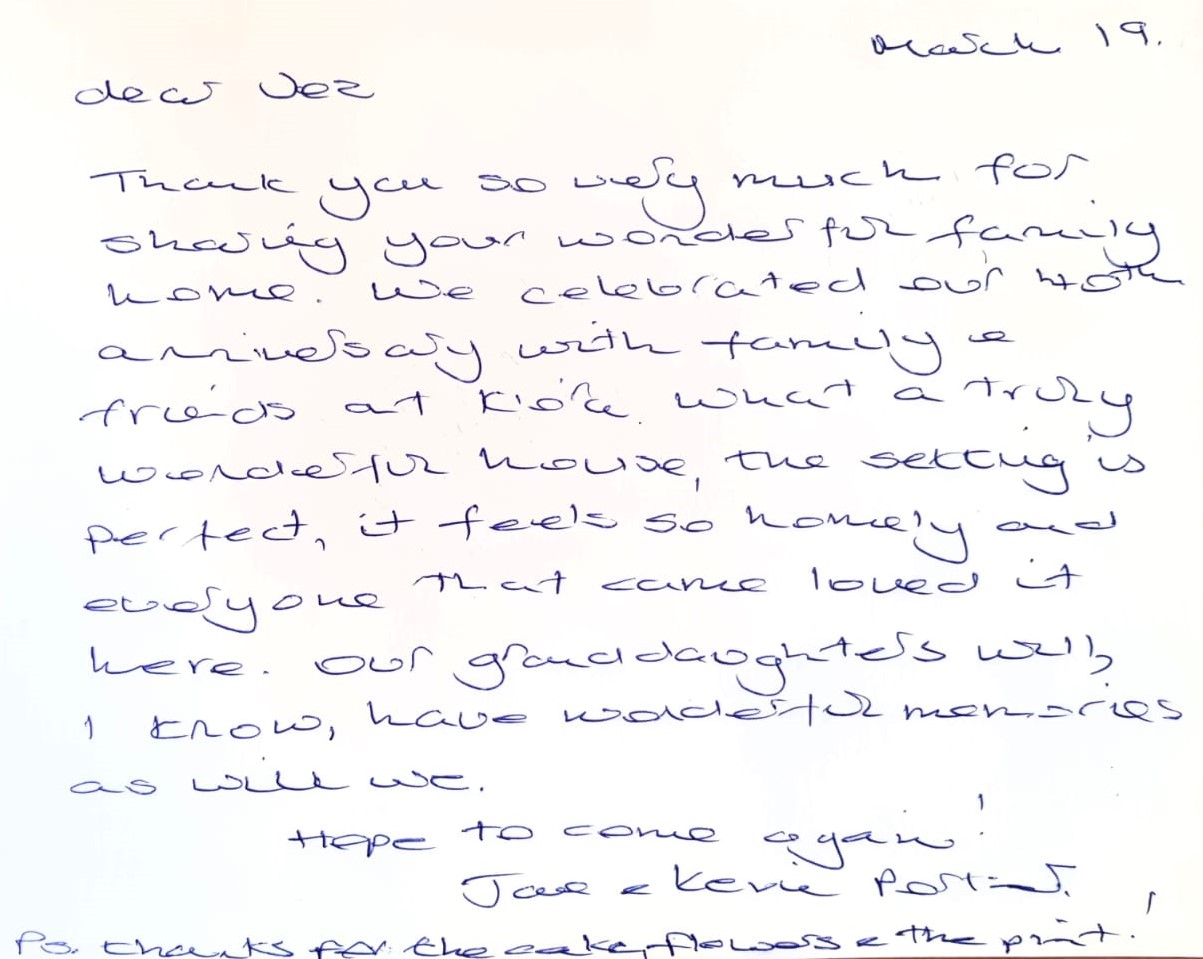 March 19.
dear Jez
Thank you so very much for
sharing your wonderful family
home. We celebrated our 40th
anniversary with family &
friends at What a truly
wonderful house, the setting is
perfect, it feels so homely and
everyone that came loved it
here. Our granddaughters will,
I know, have wonderful memories
as will we.
Hope to come again!
& Kevin
Ps. thanks for the cake, flowers & the print!